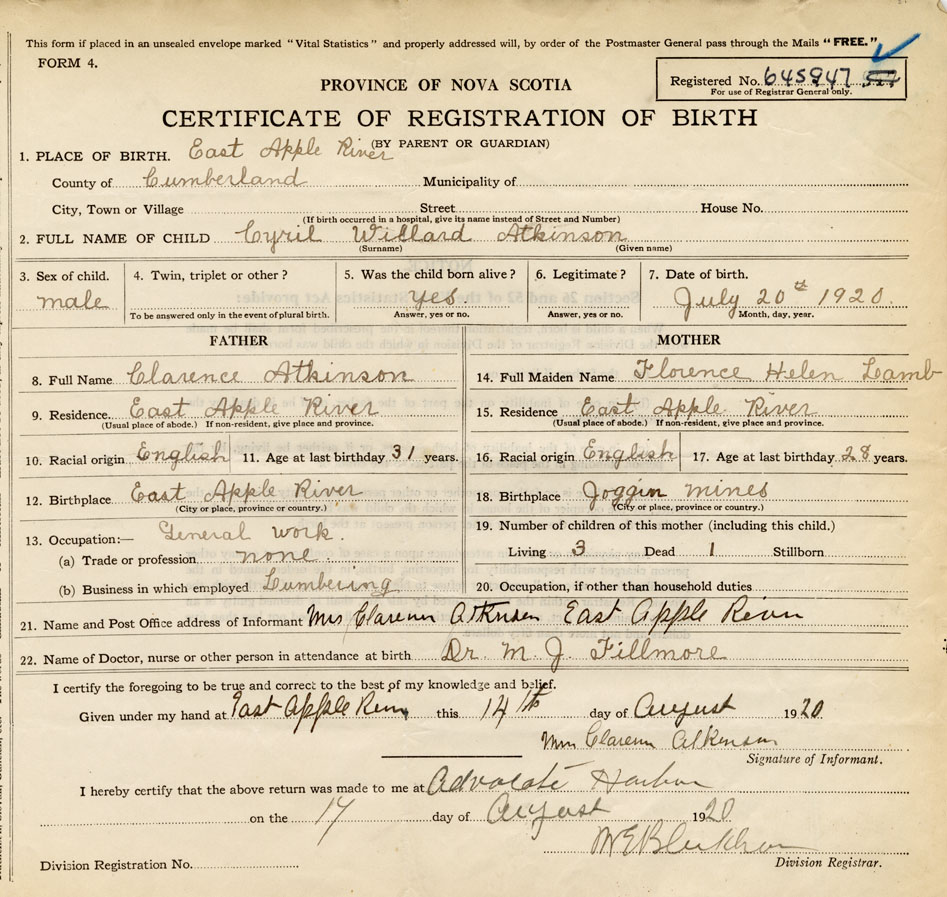 This form if placed in an unsealed envelope marked "Vital Statistics" and properly addressed will, by order of the Postmaster General pass through the Mails "FREE."
FORM 4.
Registered No. 645947
For use of Registrar General only.
PROVINCE OF NOVA SCOTIA
CERTIFICATE OF REGISTRATION OF BIRTH
(BY PARENT OR GUARDIAN)
1. PLACE OF BIRTH. East Apple River
County of Cumberland Municipality of
City, Town or Village Street House No.
(If birth occurred in a hospital, give its name instead of Street and Number)
2. FULL NAME OF CHILD Cyril Willard Atkinson
(Surname) (Given name)
3. Sex of child. 4. Twin, triplet or other? 5. Was the child born alive? 6. Legitimate? 7. Date of birth.
male yes July 20th 1920.
To be answered only in the event of plural birth. Answer, yes or no. Answer, yes or no. Month, day, year.
FATHER MOTHER
8. Full Name Clarence Atkinson 14. Full Maiden Name Florence Helen Lamb
9. Residence. East Apple River 15. Residence East Apple River
(Usual place of abode.) If non-resident, give place and province. (Usual place of abode.) If non-resident, give place and province.
10. Racial origin English 11. Age at last birthday 31 years. 16. Racial origin English 17. Age at last birthday 28 years.
12. Birthplace East Apple River 18. Birthplace Joggin mines
(City or place, province or country.) (City or place, province or country.)
13. Occupation:— General work. 19. Number of children of this mother (including this child.)
(a) Trade or profession none Living 3 Dead 1 Stillborn
(b) Business in which employed Lumbering 20. Occupation, if other than household duties
21. Name and Post Office address of Informant Mrs Clarence Atkinson East Apple River
22. Name of Doctor, nurse or other person in attendance at birth Dr. M. J. Fillmore
I certify the foregoing to be true and correct to the best of my knowledge and belief.
Given under my hand at East Apple River this 14th day of August 1920
Mrs Clarence Atkinson
Signature of Informant.
I hereby certify that the above return was made to me at Advocate Harbor
on the 17 day of August 1920
Division Registration No. Division Registrar.